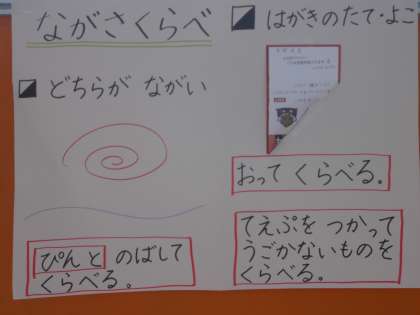 ながさくらべ
どちらが ながい
ぴんと のばして
くらべる。
はがきのたて・よこ
おって くらべる。
てえぷを つかって
うごかないものを
くらべる。